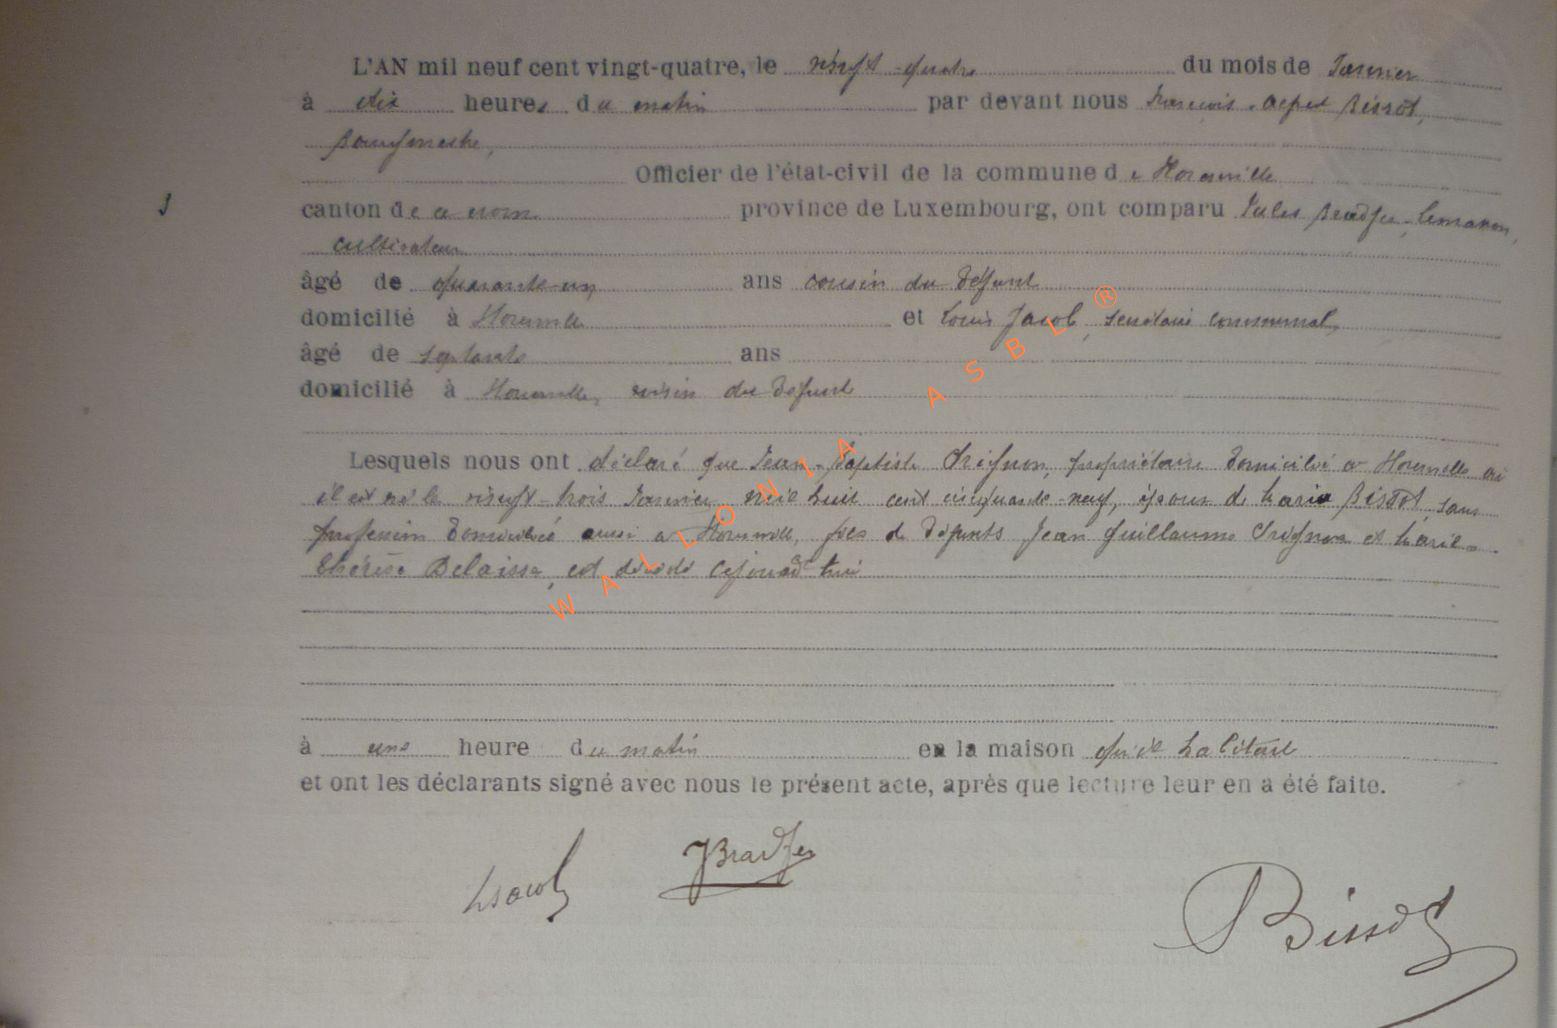 L'AN mil neuf cent vingt-quatre, le vingt-quatre du mois de Janvier
à dix heures du matin par devant nous François-Alfred Bissot,
Bourgmestre,
Officier de l'état-civil de la commune de Moircy
3
canton de province de Luxembourg, ont comparu Jules Bradfer-Lemanon,
cultivateur
âgé de quarante-un ans cousin du défunt
domicilié à et Louis Jacob, secrétaire communal,
âgé de septante ans
domicilié à voisin du défunt
Lesquels nous ont déclaré que Jean-Baptiste Orignon, propriétaire domicilié à où
il est né le vingt-trois Janvier mil huit cent cinquante-neuf, époux de Maria Bissot, sans
profession domiciliée aussi à fils de défunts Jean Guillaume Orignon et Marie-
Thérèse Belaisse, est décédé cejourd'hui
à une heure du matin en la maison qu'il habitait
et ont les déclarants signé avec nous le présent acte, après que lecture leur en a été faite.
LJacob JBradfer
Bissot
WALLONIA ASBL ®